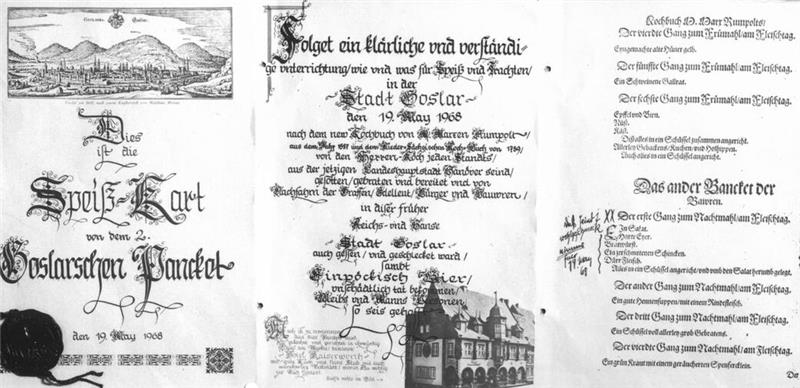 Dies
ist die
Speiß-Kart
von dem 2.
Goslarschen Pancket
den 19. May 1968
Folget ein klärliche vnd verständi-
ge vnterrichtung/wie vnd was für Speiß vnd Trachten/
in der
Stadt Goslar
den 19. May 1968
nach dem new Kochbuch von M. Marxen Rumpolt/
aus dem Jahr 1587 vnd dem Nieder-Sächsischen Koch-Buch von 1769/
von den Herren-Koch jeden Standts/
aus der jetzigen Landeshauptstadt Hanover seind/
gesotten/gebraten vnd bereitet vnd von
Nachfahrn der Graffen/Edelleut/Bürger vnd Bauwren/
in dißer früher
Reichs- vnd Hanse
Stadt Goslar
auch gessen/vnd geschleckt ward/
sambt
Einpöckisch Bier/
vnschädlich tat bekommen/
Weibs vnd Manns Personen
so seis
Kaiserworth
Kochbuch M. Marx Rumpolts/
Der vierdte Gang zum Frümahl/am Fleischtag.
Eingemachte alte Hüner gelb.
Der fünffte Gang zum Frümahl/am Fleischtag.
Ein Schweinene Gallrat.
Der sechste Gang zum Frümahl/am Fleischtag.
Epffel vnd Birn.
Nüß.
Käß.
Diß alles in ein Schüssel zusammen angericht.
Allerley Gebackens/Kuchen/vnd Holhippen.
Auch alles in ein Schüssel angericht.
Das ander Bancket der
Bawren.
XX Der erste Gang zum Nachtmahl/am Fleischtag.
Ein Salat.
Harte Eyer.
Bratwürst.
Ein zerschnittenen Schincken.
Dürr Fleisch.
Alles in ein Schüssel angericht/vnd vmb den Salat herumb gelegt.
Der ander Gang zum Nachtmahl/am Fleischtag.
Ein gute Hennensuppen/mit einem Rindfleisch.
Der dritt Gang zum Nachtmahl/am Fleischtag.
Ein Schüssel voll allerley groß Gebratens.
Der vierdte Gang zum Nachtmahl/am Fleischtag.
Ein grün Kraut mit einem geräucherten Spensferckleïn.
Der